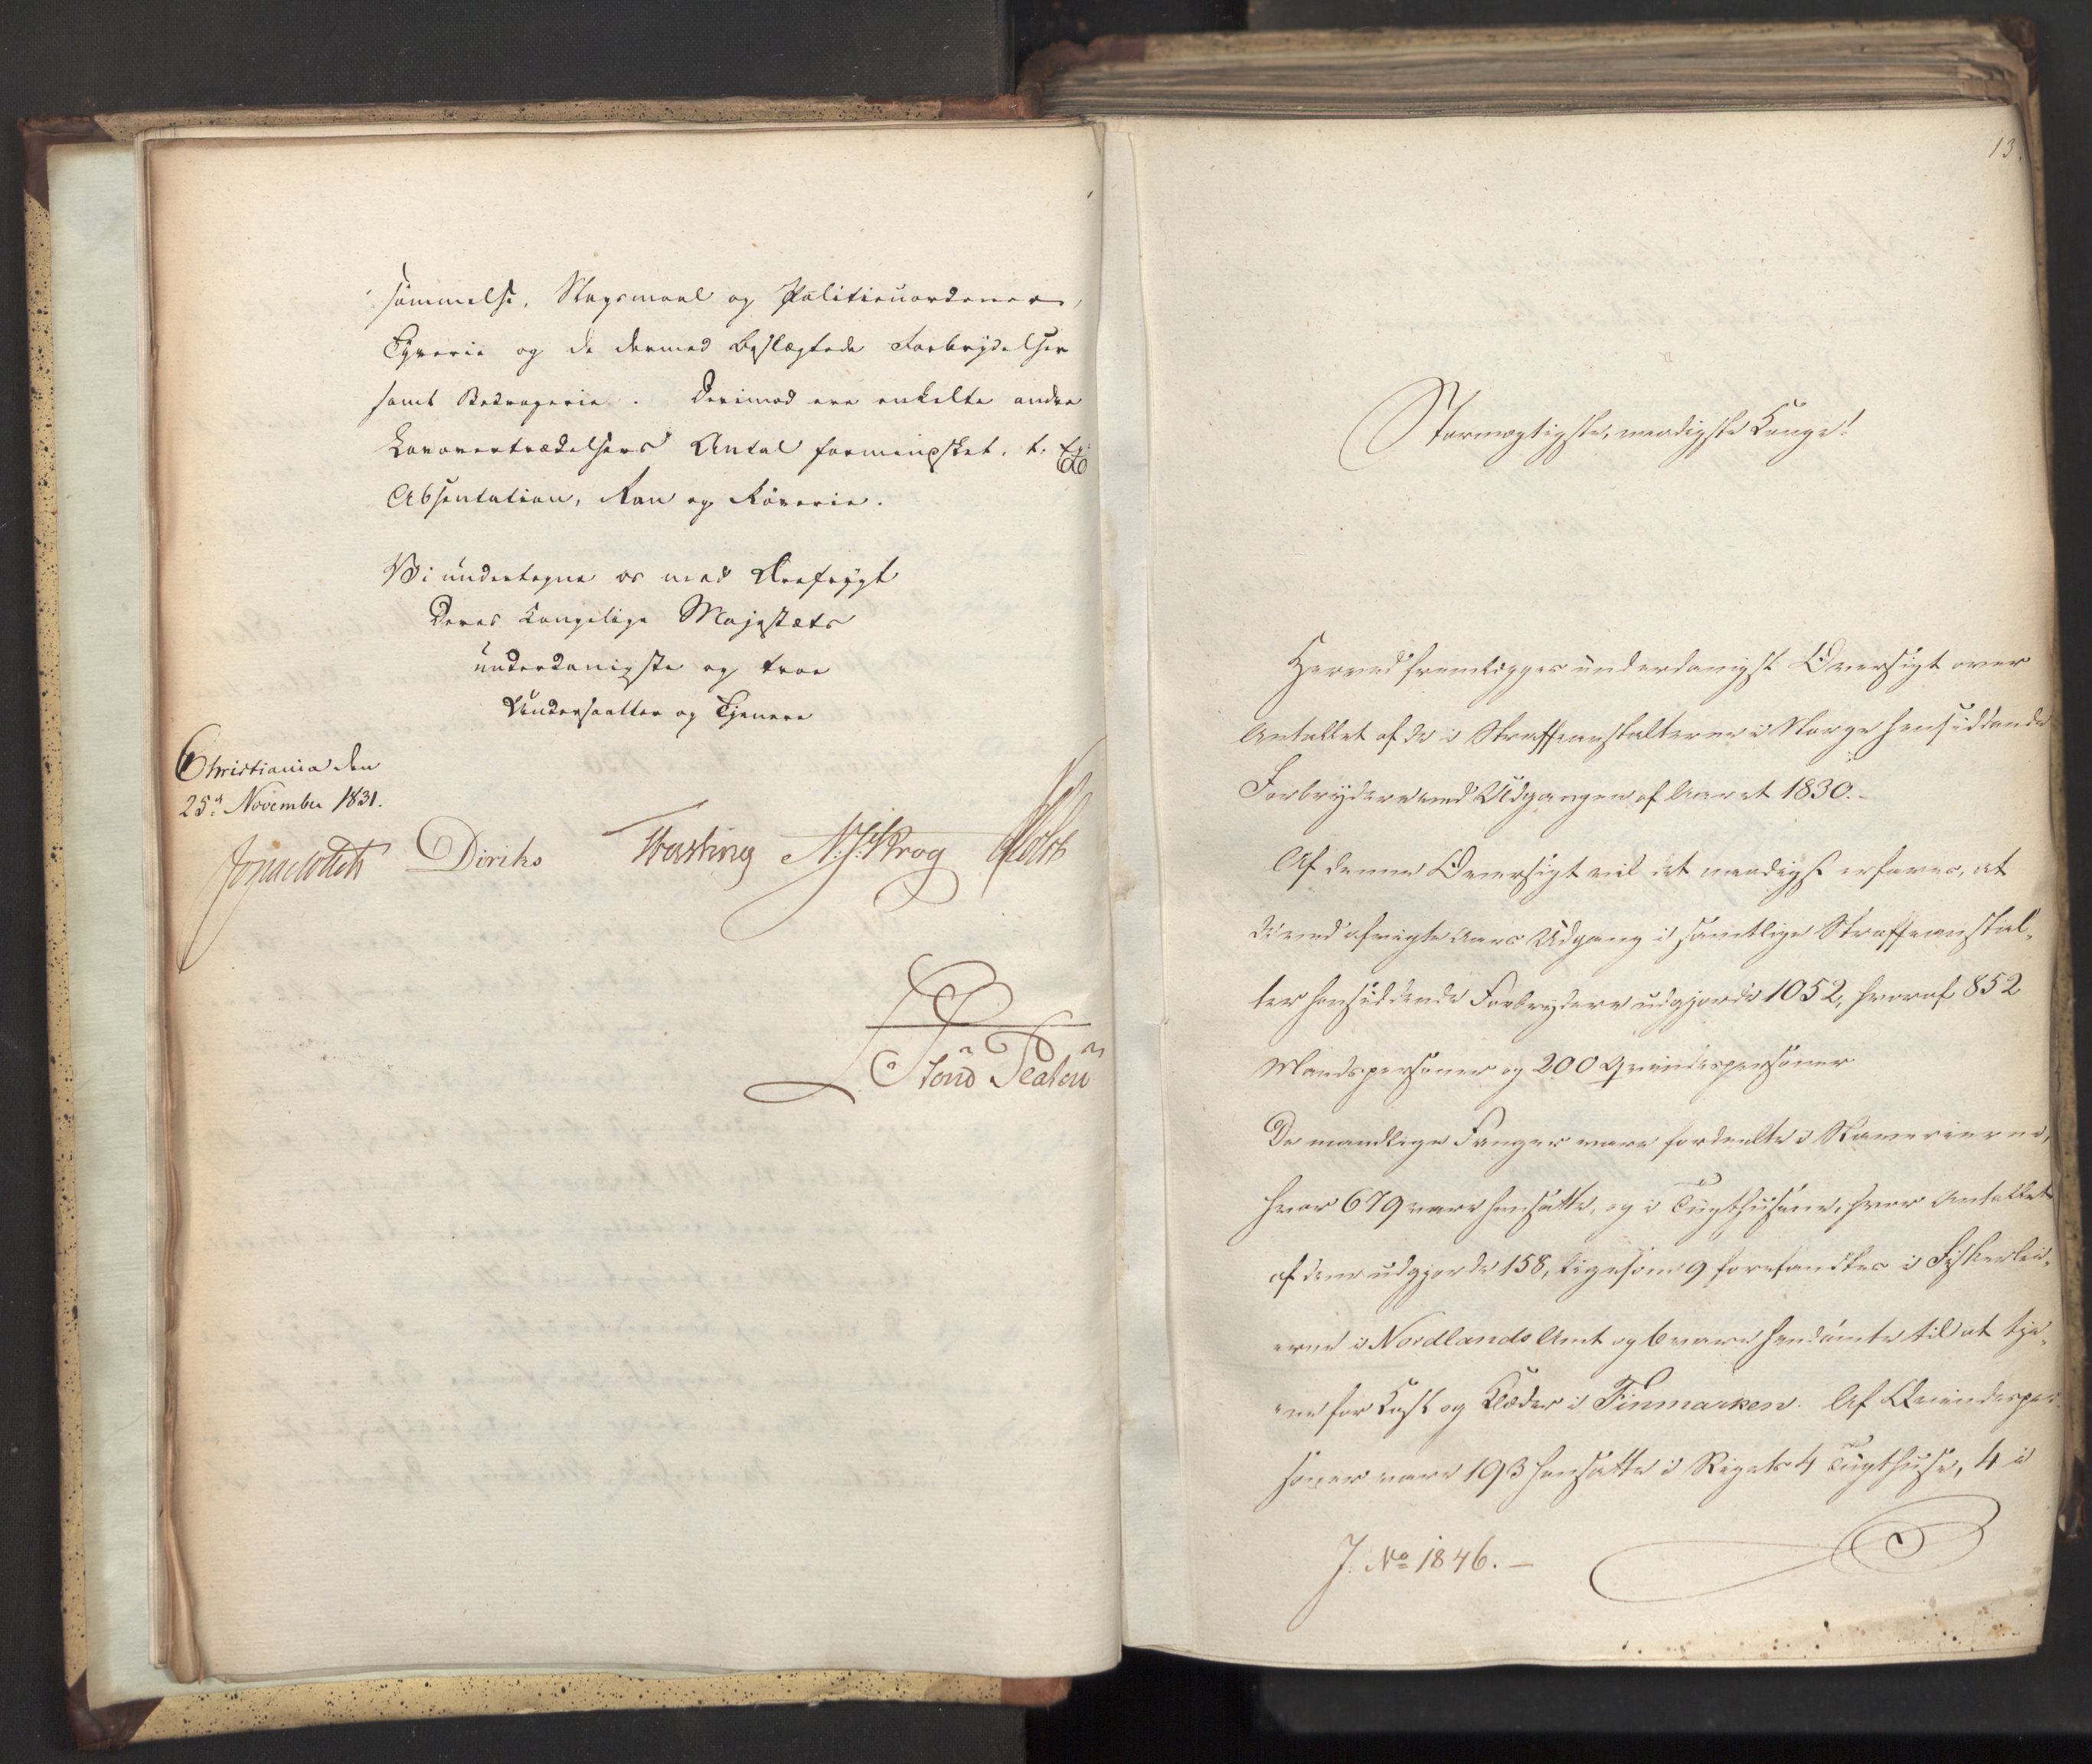 sømmelse, Slagsmaal og Politieuordener,
Tyverie og de dermed beslægtede Forbrydelser
samt Bedragerie. Derimod ere enkelte andre
Lovovertrædelsers Antal formindsket, t. Ex:
Absentation, Ran og Røverie.
Vi undertegne os med Ærefrygt
Deres Kongelige Majestæts
underdanigste og troe
Undersaatter og Tjenere
Christiania den
25d November 1831.
Jonas Collett Diriks Fasting N. J. Krog Holst
13.
Stormægtigste, naadigste Konge!
Herved fremlægges underdanigst Oversigt over
Antallet af de i Straffeanstalterne i Norge hensiddende
Forbrydere ved Udgangen af Aaret 1830.-
Af denne Oversigt vil det naadigst erfares, at
de ved afvigte Aars Udgang i samtlige Straffeanstal-
ter hensiddende Forbrydere udgjorde 1052, hvoraf 852
Mandspersoner og 200 Qvindespersoner
De mandlige Fanger vare fordeelte i Slaverierne,
hvor 679 vare hensatte, og i Tugthusene, hvor Antallet
af dem udgjorde 158, ligesom 9 forefandtes i Fiskerlei-
erne i Nordlands Amt og 6 vare hendømte til at tje-
ne for Kost og Klæder i Finmarken. Af Qvindesper-
soner vare 193 hensatte i Rigets 4 Tugthuse, 4 i
J. No 1846. –